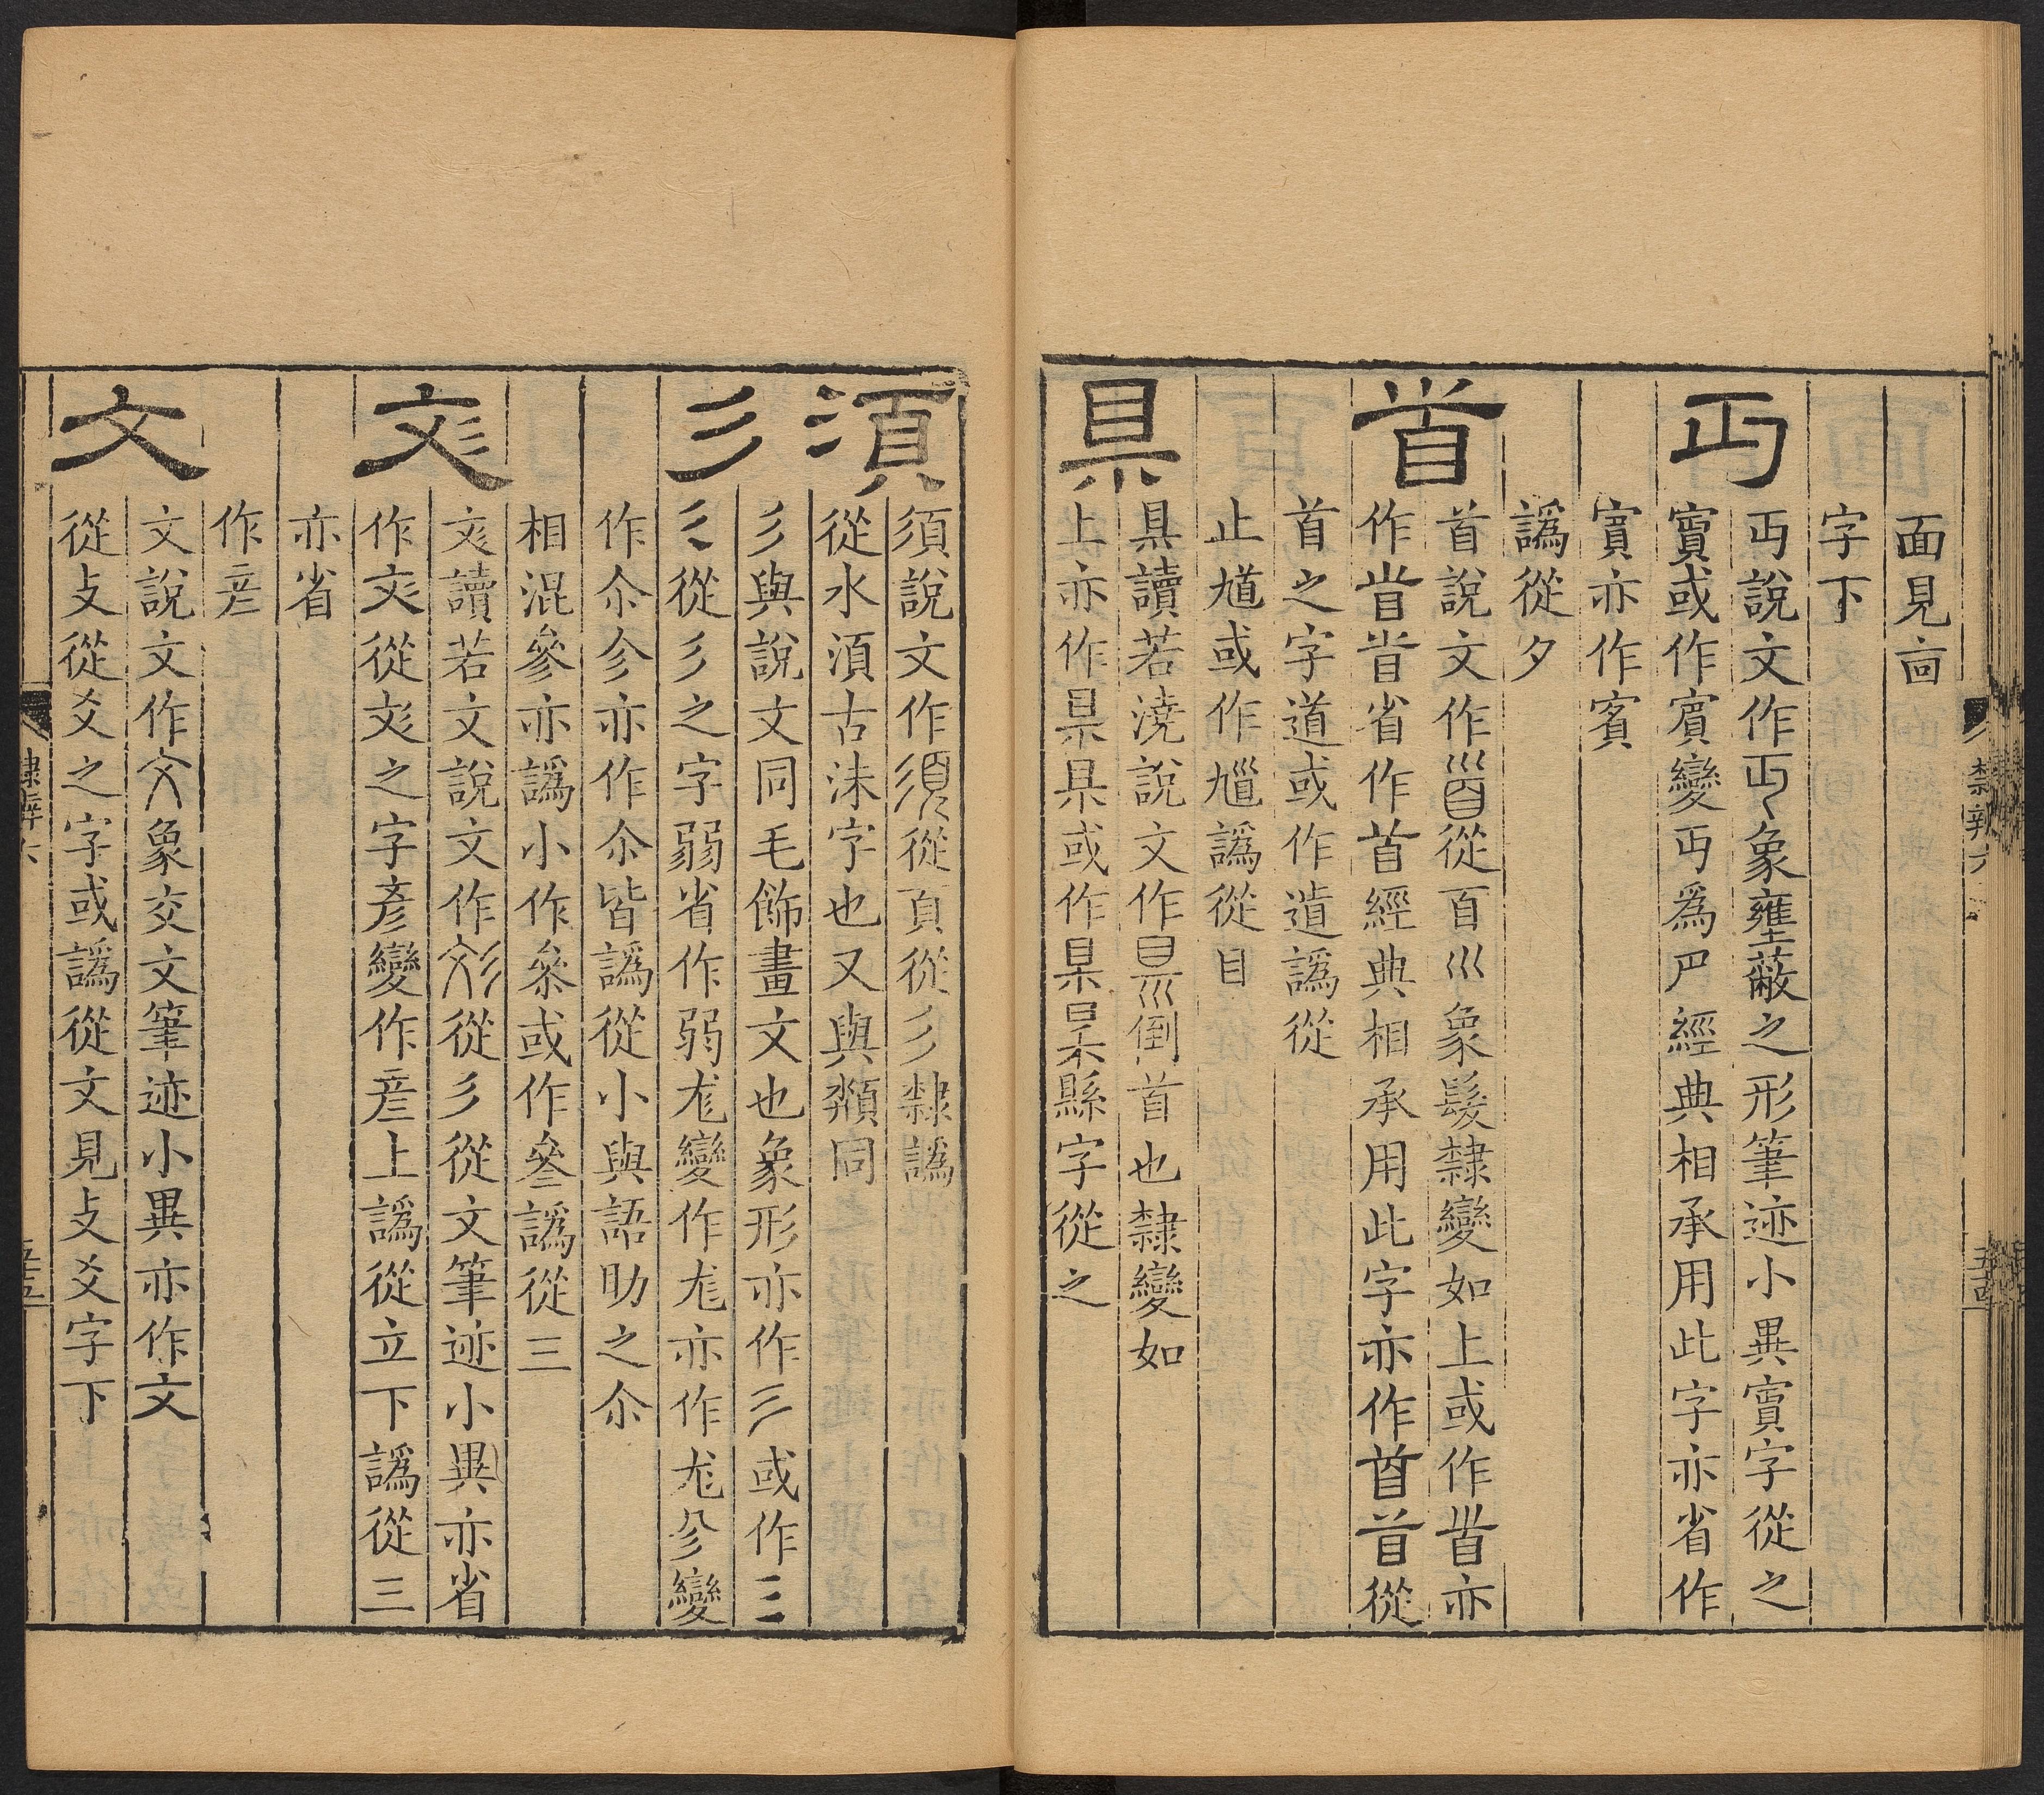 面見𠚑
字下
丏
丏說文作丏象壅蔽之形筆迹小異賔字從之
賔或作賔變丏爲𡰣經典相承用此字亦省作
賔亦作賓
譌從夕
𩠐
首說文作𩠐從百巛象髮隸變如上或作𩠐亦
作𩠐𩠐省作首經典相承用此字亦作首首從
首之字道或作道譌從
止馗或作馗譌從目
𥄉
𥄉讀若澆說文作𥄉倒首也隸變如
上亦作𥄉𥄉或作𥄉𥄉縣字從之
隸辨六
五十四
湏
須說文作須從頁從彡隸譌
從水湏古沬字也又與纇同
彡
彡與說文同毛飾畫文也象形亦作三或作三
𠄞從彡之字弱省作弱尨變作尨亦作尨㐱變
作尒㐱亦作尒皆譌從小與語助之尒
相混參亦譌小作叅或作叁譌從三
彣
彣讀若文說文作彣從彡從文筆迹小異亦省
作彣從彣之字彥變作彦上譌從立下譌從三
亦省
作彦
文
文說文作文象交文筆迹小異亦作文
從攴從爻之字或譌從文見攴爻字下
隸辨六
五十五